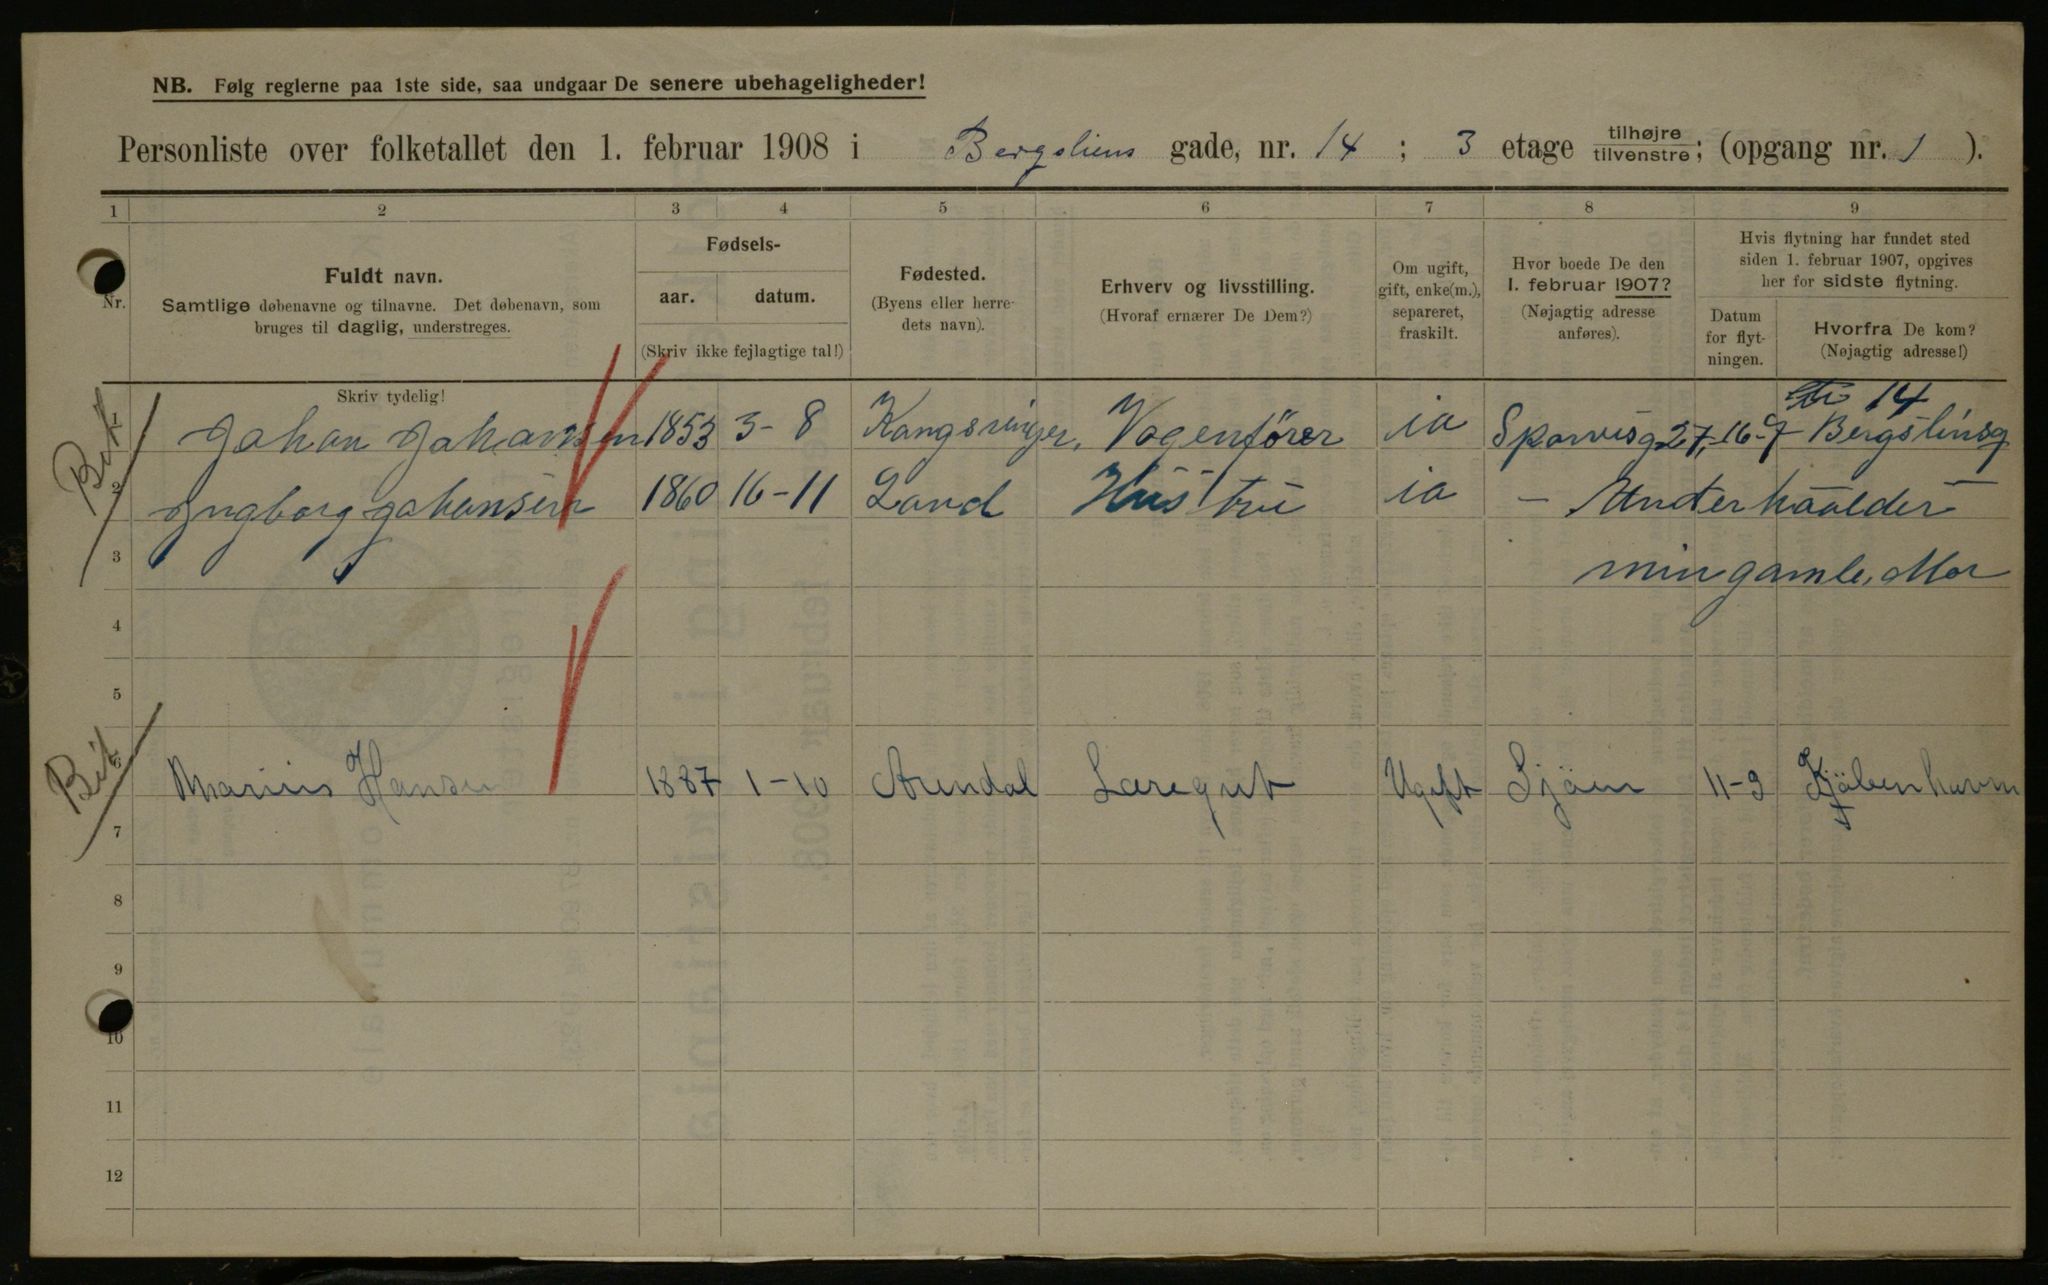 NB. Følg reglerne paa 1ste side, saa undgaar De senere ubehageligheder!
Personliste over folketallet den 1. februar 1908 i Bergsliens gade, nr. 14 ; 3 etage tilhøjre tilvenstre; (opgang nr. 1 ).
1 2 3 4 5 6 7 8 9
Nr.
Fuldt navn.
Samtlige døbenavne og tilnavne. Det døbenavn, som
bruges til daglig, understreges.
Fødsels-
aar. datum.
(Skriv ikke fejlagtige tal!)
Fødested.
(Byens eller herre-
dets navn).
Erhverv og livsstilling.
(Hvoraf ernærer De Dem?)
Om ugift,
gift, enke(m.),
separeret,
fraskilt.
Hvor boede De den
1. februar 1907?
(Nøjagtig adresse
anføres).
Hvis flytning har fundet sted
siden 1. februar 1907, opgives
her for sidste flytning.
Datum
for flyt-
ningen.
Hvorfra De kom?
(Nøjagtig adresse!)
Skriv tydelig!
14
1 Johan Johansen 1853 3-8 Kongsvinger, Vogenfører ia Sporvisg 27, 16-9 Bergslinsg
Bit
2 Ingborg Johansen 1860 16-11 Land Hustru ia — Underhaalder
3 min gamle, Mor
4
5
Bit
6 Marius Hansen 1887 1-10 Arendal Læregut Ugift Sjöen 11-9 Kjöbenhavn
7
8
9
10
11
12